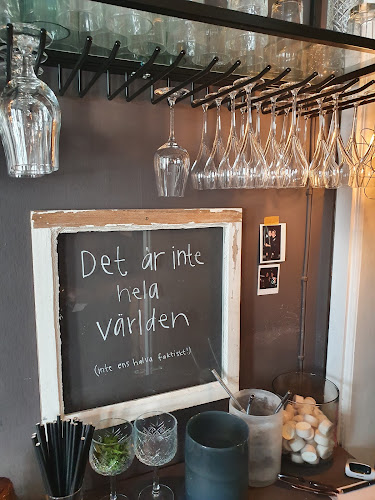 Det är inte
hela
världen
(inte ens halva faktiskt")